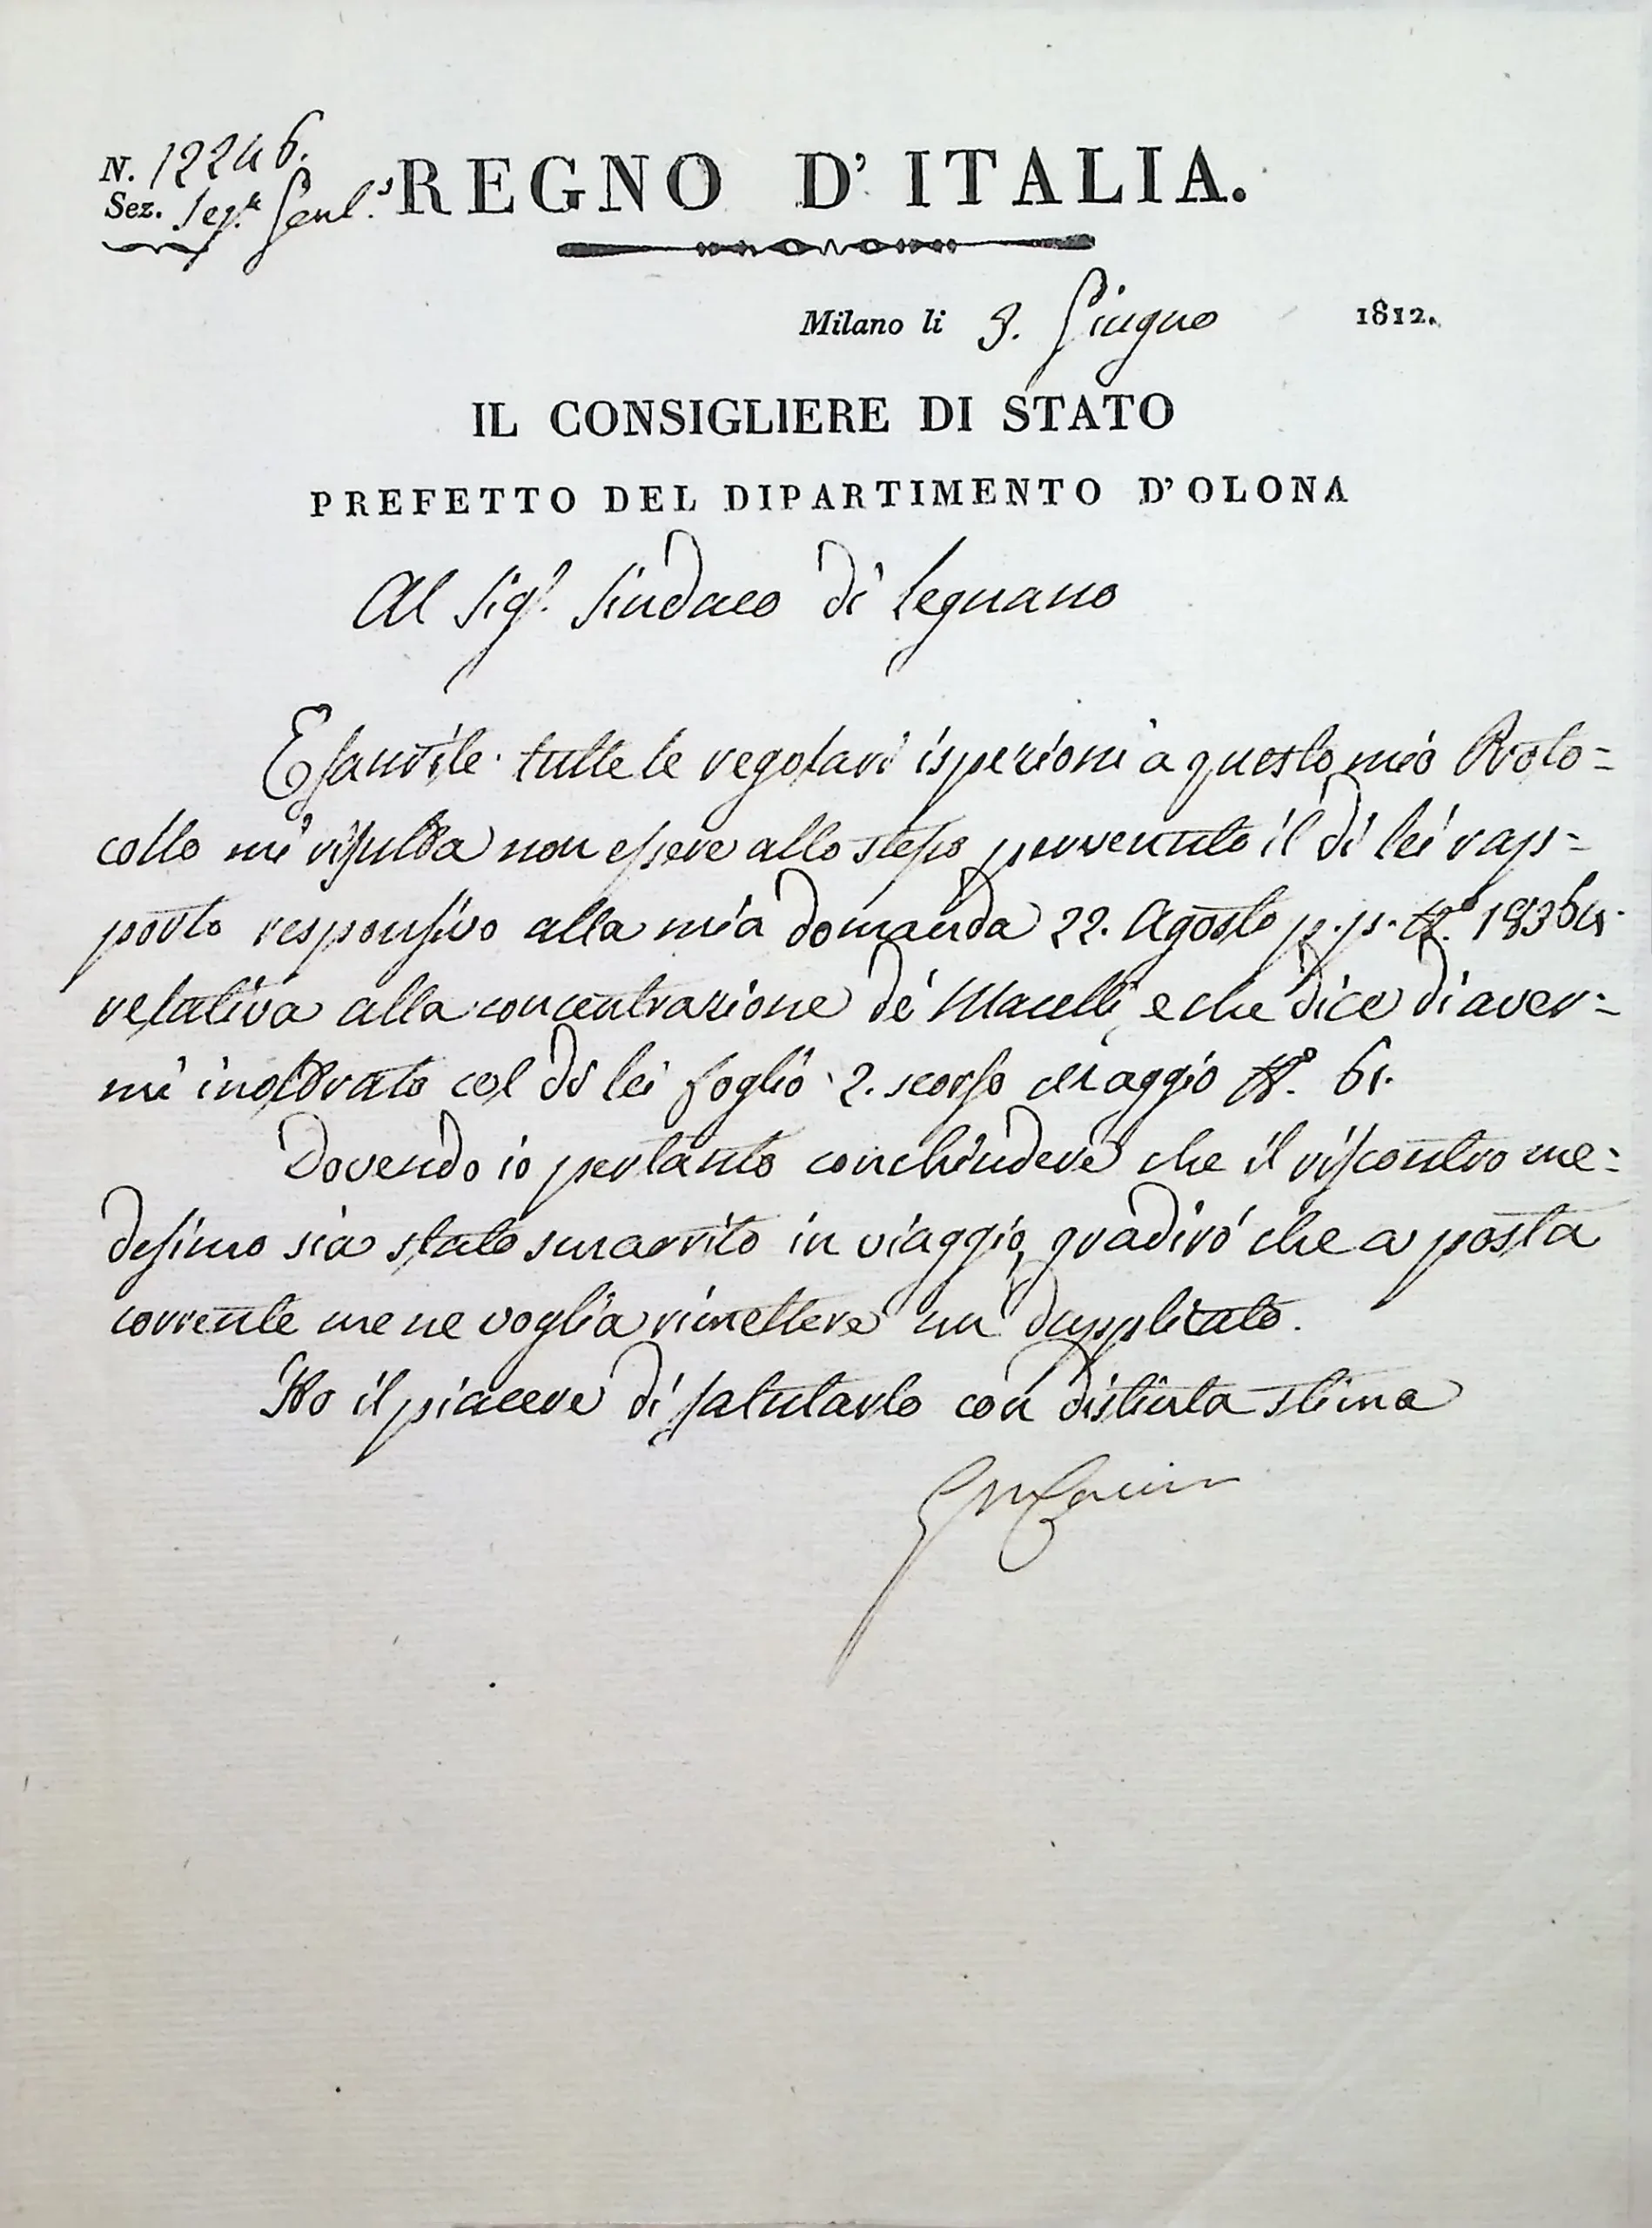 N. 12246.
Sez. Seg.a Genl.e
REGNO D' ITALIA.
Milano li 3. Giugno 1812.
IL CONSIGLIERE DI STATO
PREFETTO DEL DIPARTIMENTO D'OLONA
Al Sigr. Sindaco di Legnano
Esaurite tutte le regolari ispezioni a questo mio Proto=
collo mi risulta non essere allo stesso pervenuto il di lei rap=
porto responsivo alla mia domanda 22. Agosto p.p. No.
relativa alla concentrazione de' Macelli, e che dice di aver=
mi inoltrato col di lei foglio 2. scorso Maggio No. 61.
Dovendo io pertanto conchiudere che il riscontro me=
desimo sia stato smarrito in viaggio, gradirò che a posta
corrente me ne voglia rimettere un dupplicato.
Ho il piacere di salutarlo con distinta stima